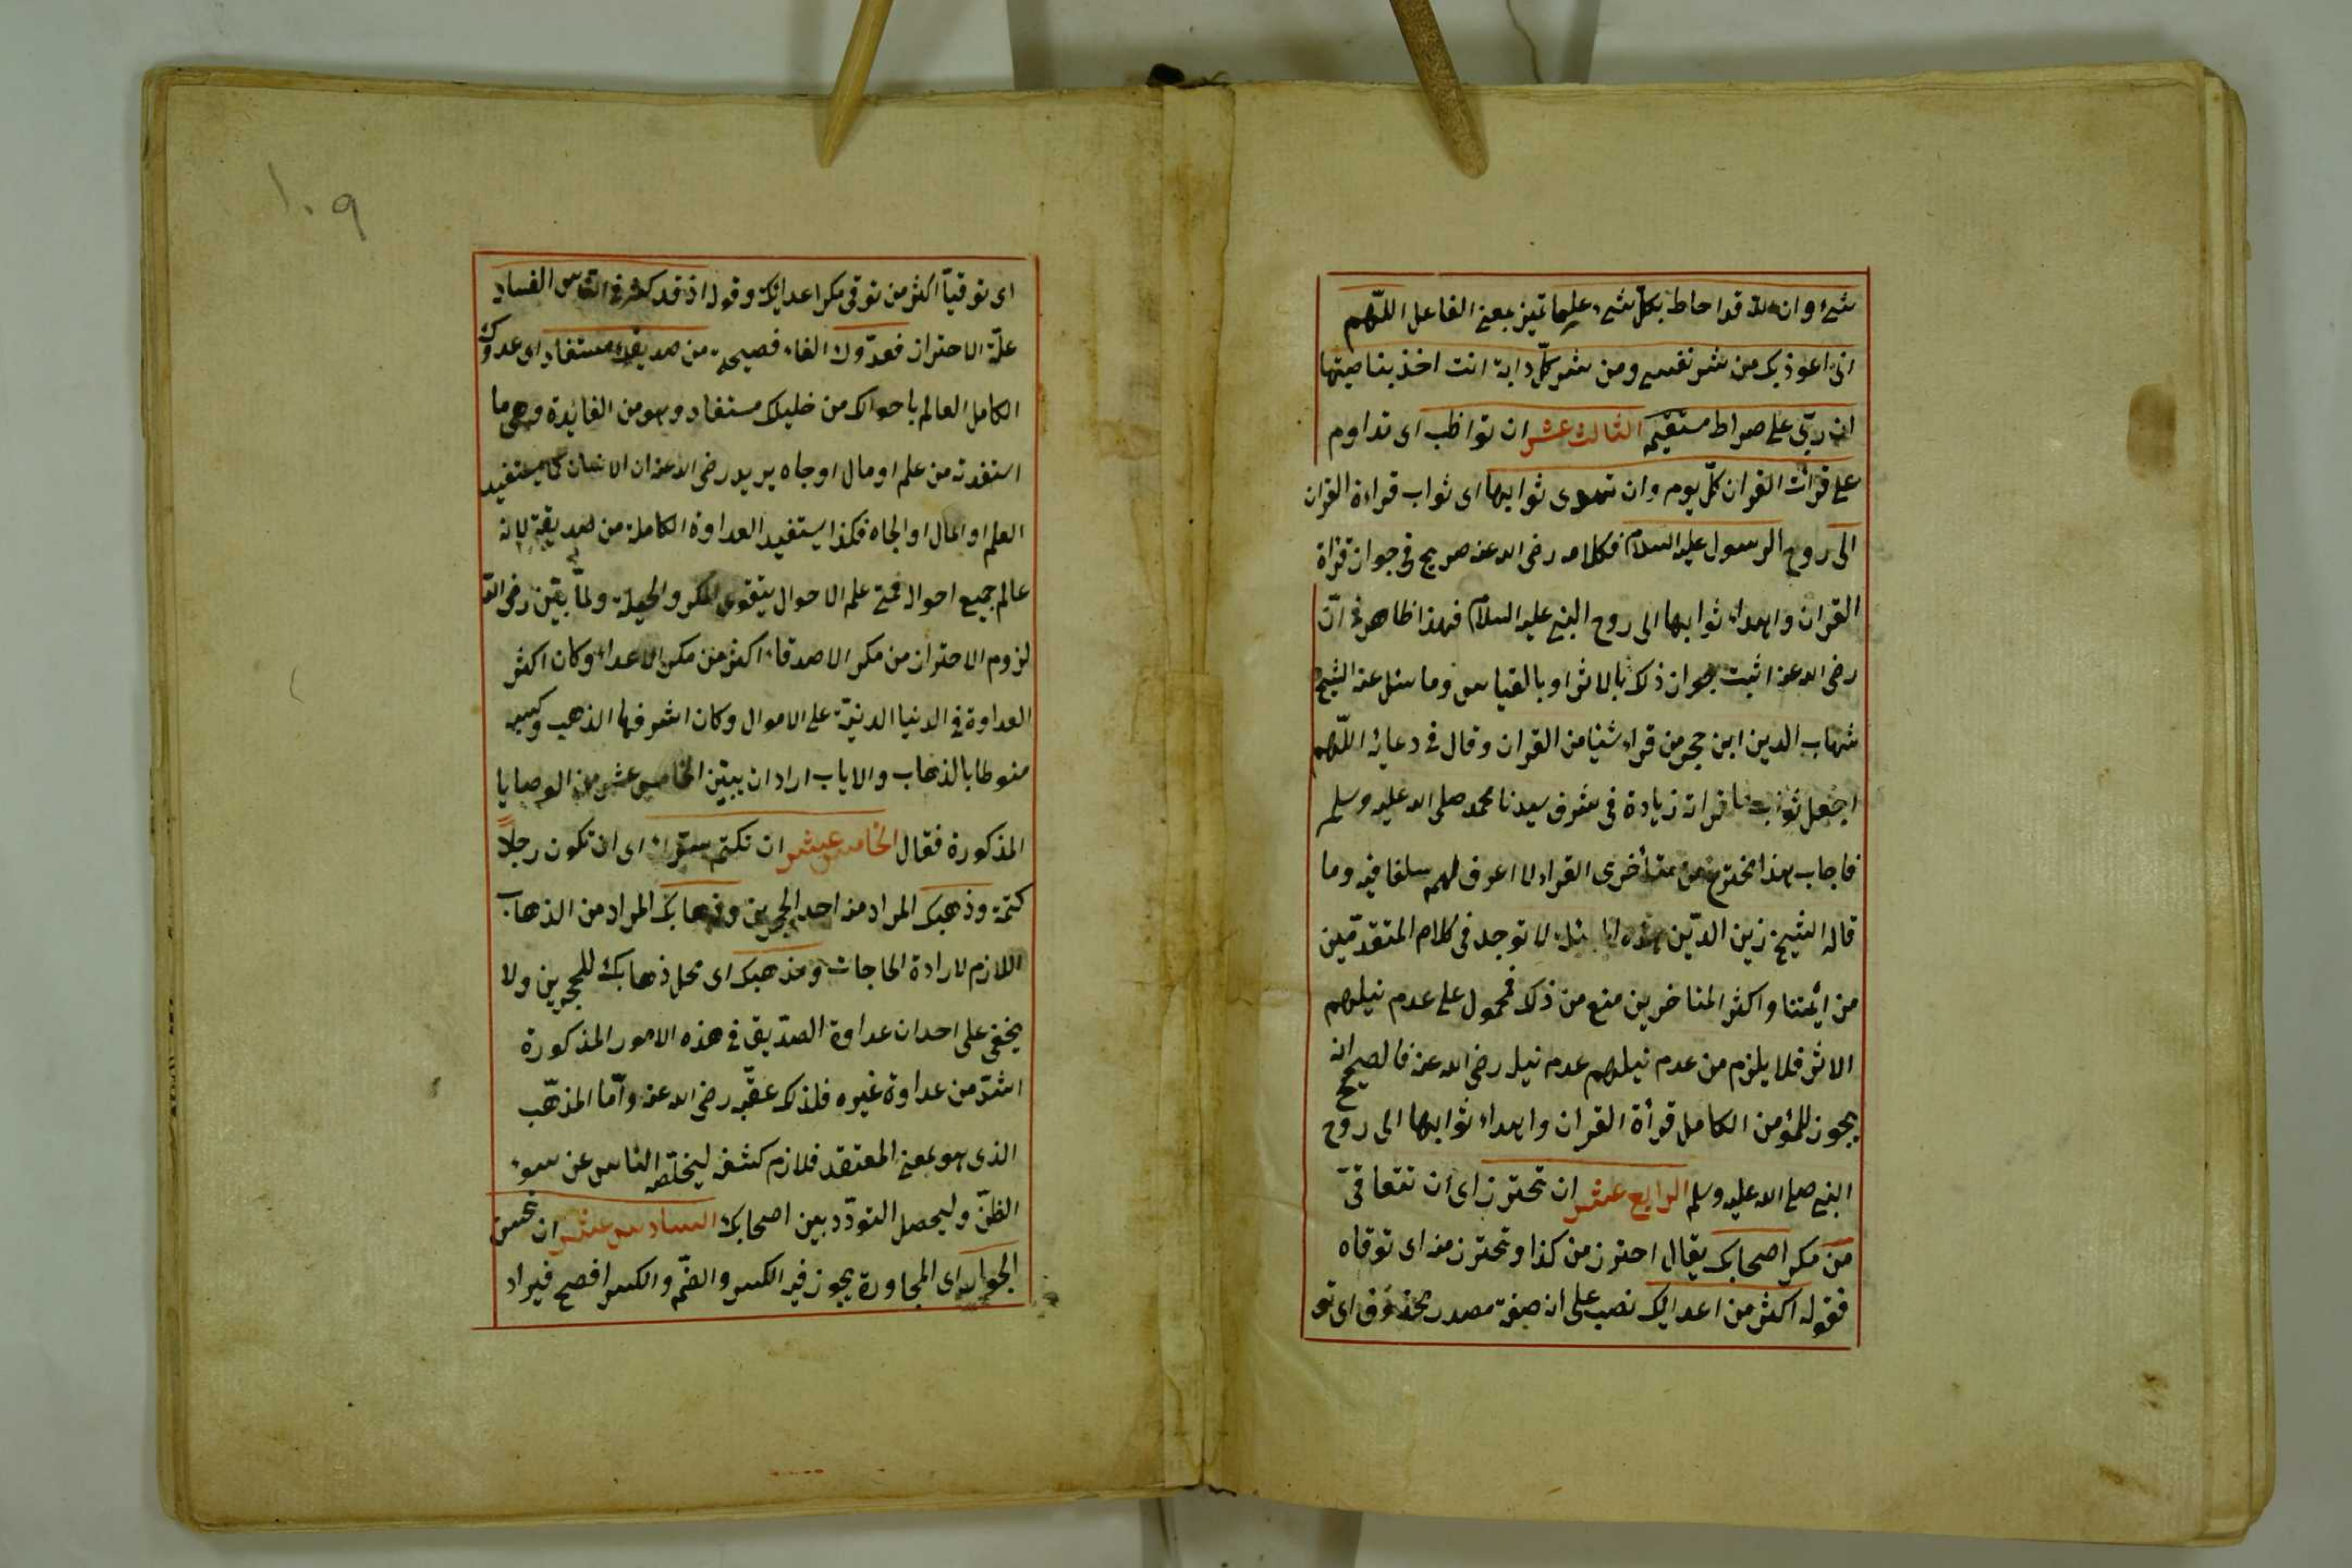 شئ وان الله قد احاط بكل شئ علما تميز بمعنى الفاعل اللهم
انى اعوذ بك من شر نفسى ومن شر كل دابة انت اخذ بناصيتها
ان ربى على صراط مستقيم الثالث عشر ان تواظب اى تداوم
على قرأت القران كل يوم وان تهدى ثوابها اى ثواب قراءة القران
الى روح الرسول عليه السلام فكلامه رضى الله عنه صريح فى جواز قرأة
القران واهداء ثوابها الى روح النبى عليه السلام فهذا ظاهر فى ان
رضى الله عنه اثبت جواز ذلك بالاثر او بالقياس وما سئل عنه الشيخ
شهاب الدين ابن حجر من قراء شيئا من القران وقال فى دعائه اللهم
اجعل ثواب ما قراته زيادة فى شرف سيدنا محمد صلى الله عليه وسلم
فاجاب هذا مخترع من متأخرى القراء لا اعرف لهم سلفا فيه وما
قاله الشيخ زين الدين هذه لا توجد فى كلام المتقدمين
من ائمتنا واكثر المتاخرين منع من ذلك فمحمول على عدم نيلهم
الاثر فلا يلزم من عدم نيلهم عدم نيله رضى الله عنه فالصحيح انه
يجوز للمؤمن الكامل قرأة القران واهداء ثوابها الى روح
النبى صلى الله عليه وسلم الرابع عشر ان تحترز اى ان تتعاقى
من مكر اصحابك يقال احترز من كذا وتحترز منه اى توقاه
فقوله اكثر من اعدائك نصب على انه صفة مصدر محذوف اى تو
١٠٩
اى توقيا اكثر من توقى مكر اعدائك وقوله اذ قد كثر فى الناس الفساد
علة الاحتراز فعدوك الفاء فصيحة من صديقك مستفاد اى عدوك
الكامل العالم باحوالك من خليلك مستفاد وهو من الفائدة وهى ما
استفدته من علم او مال او جاه يريد رضى الله عنه ان الانسان كما يستفيد
العلم او المال او الجاه فكذا يستفيد العداوة الكاملة من صديقه لانه
عالم جميع احواله فمتى علم الاحوال يتقوى المكر والحيلة ولما بين رضى الله
لزوم الاحتراز من مكر الاصدقاء اكثر من مكر الاعداء وكان اكثر
العداوة فى الدنيا الدنية على الاموال وكان اشرفها الذهب وكسبه
منوطا بالذهاب والاياب اراد ان يبين الخامس عشر من الوصايا
المذكورة فقال الخامس عشر ان تكتم سترا اى ان تكون رجلا
كتمة وذهبك المراد منه احد الحجرين وذهابك المراد من الذهاب
اللازم لارادة الحاجات ومذهبك اى محل ذهابك للحجرين ولا
يخفى على احد ان عداوة الصديق فى هذه الامور المذكورة
اشد من عداوة غيره فلذلك عقبه رضى الله عنه واما المذهب
الذى هو بمعنى المعتقد فلازم كشفه ليخلصه الناس عن سوء
الظن وليحصل التودد بين اصحابك السادس عشر ان تحسن
الجوار اى المجاورة يجوز فيه الكسر والضم والكسر افصح فيراد